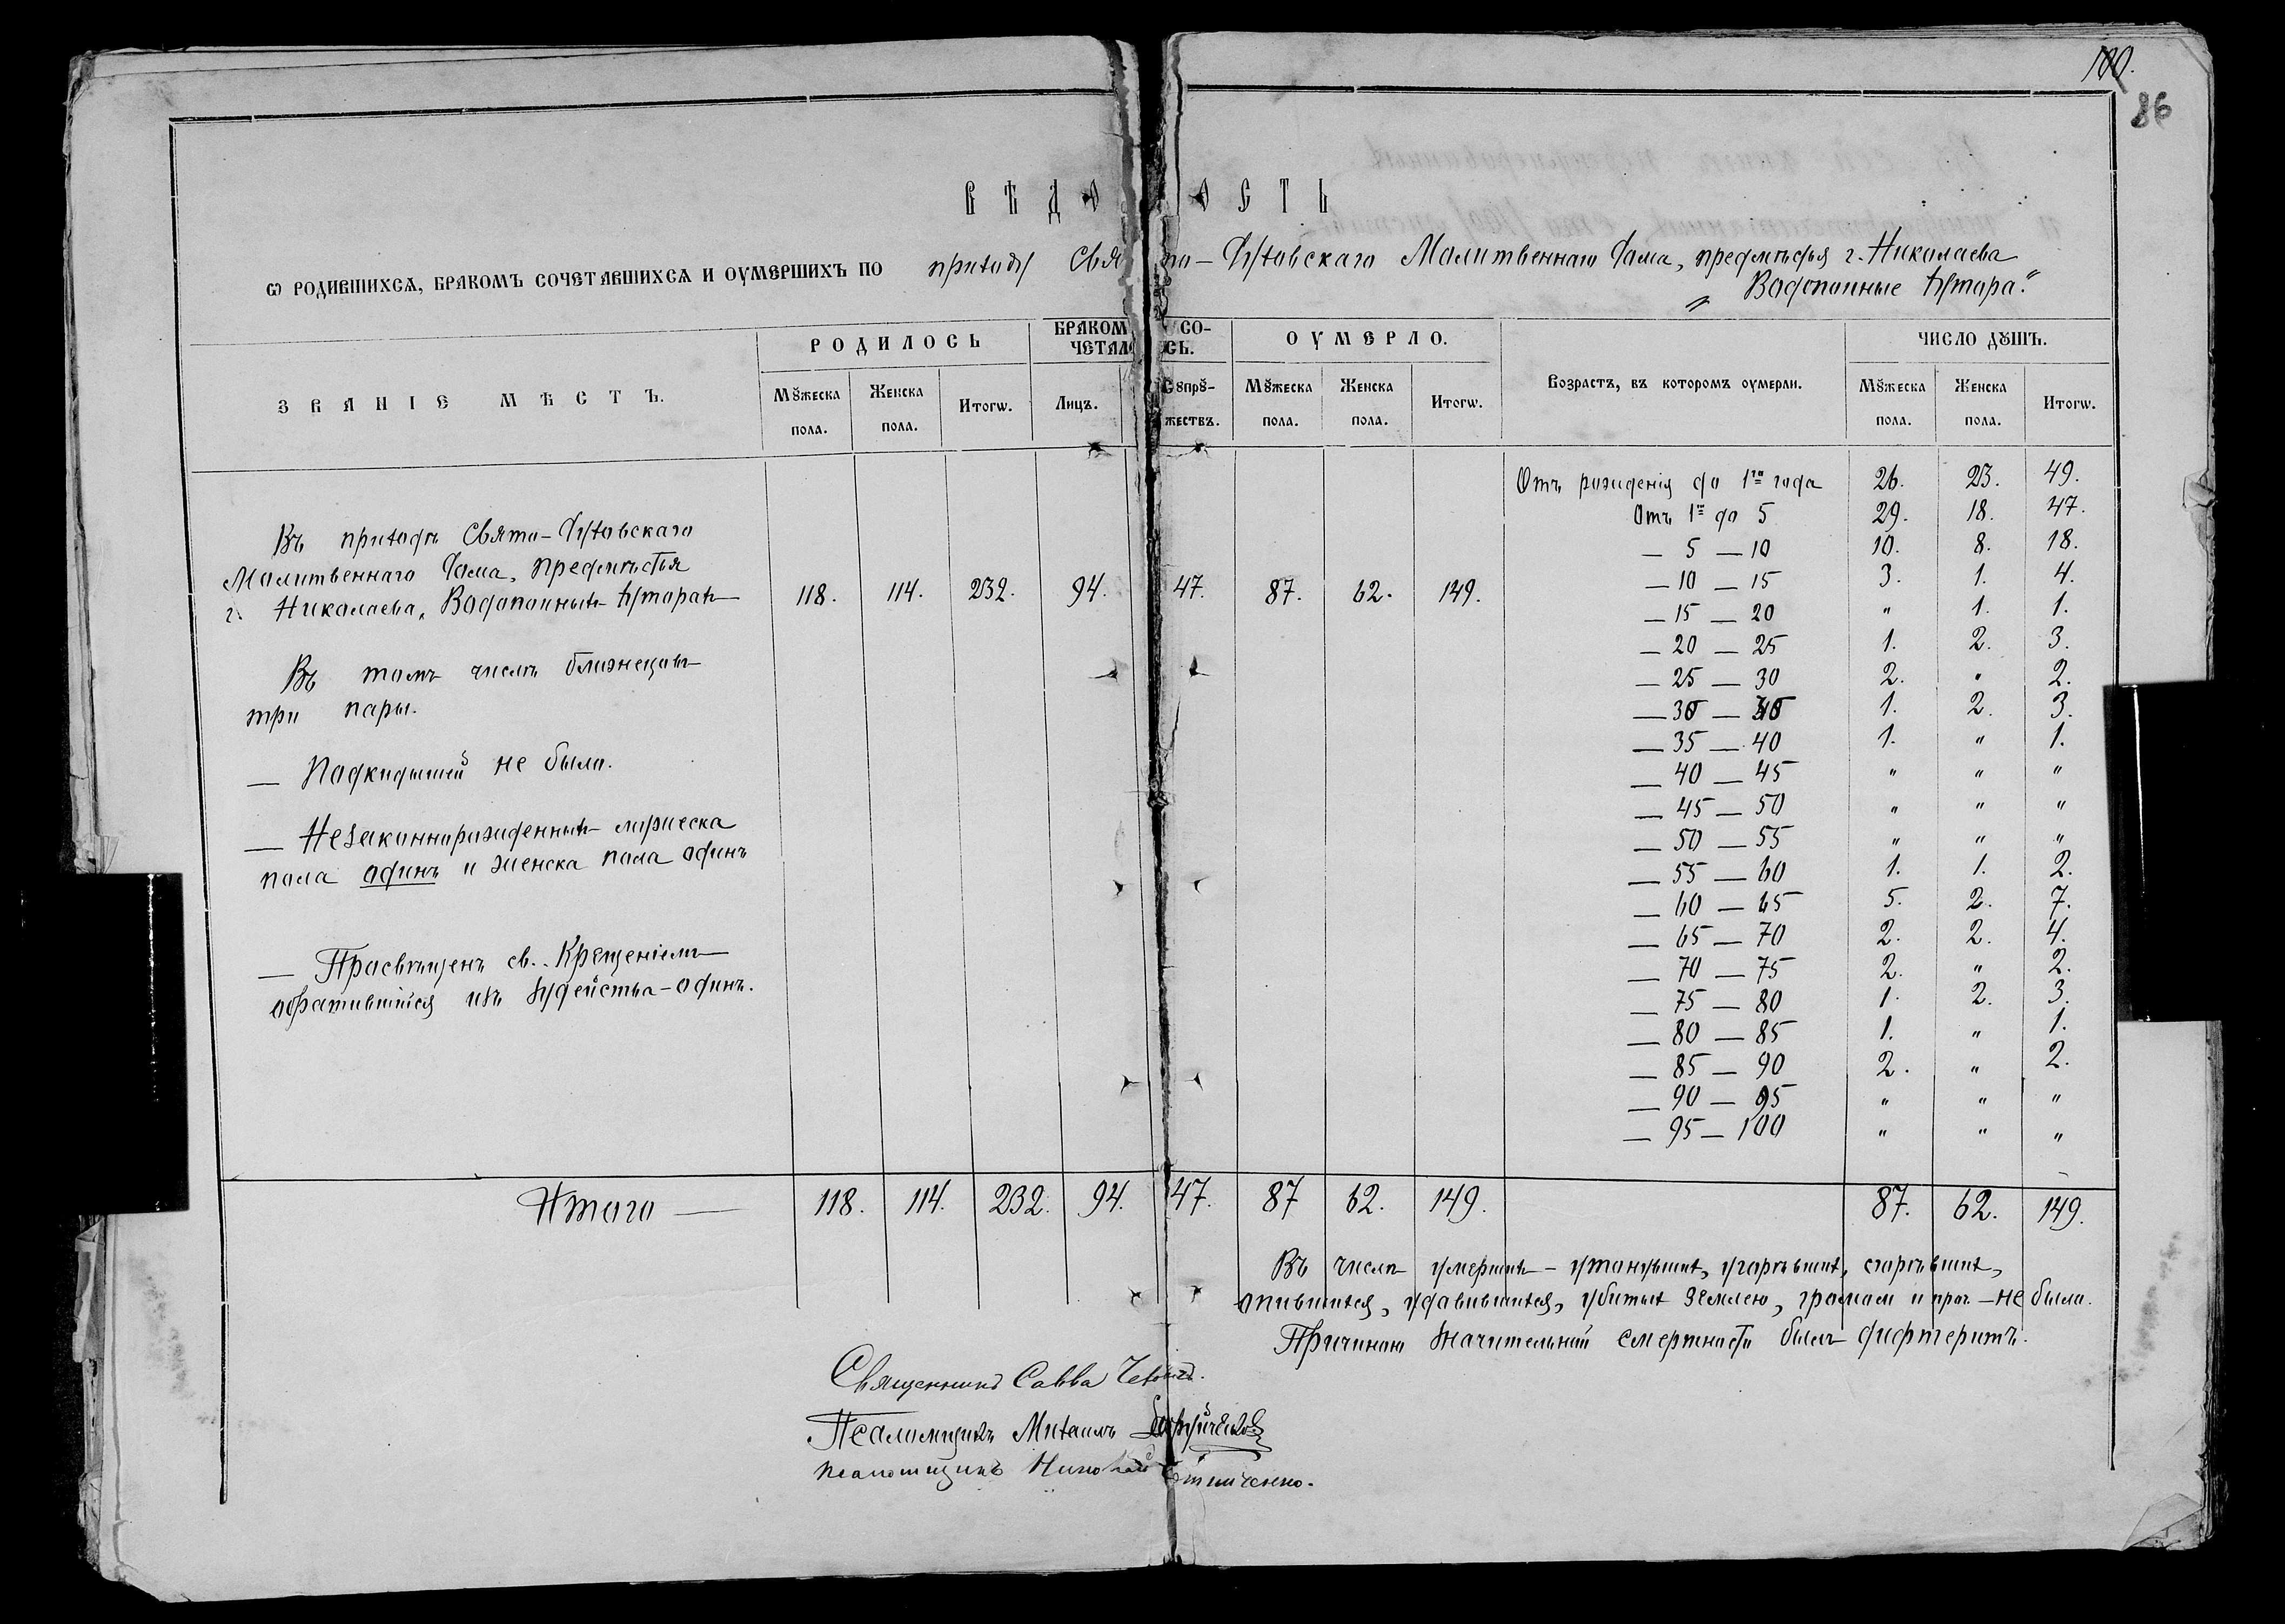 100.
86
ВѢДОМОСТЬ
Ѡ РОДИВШИХСѦ, БРАКОМЪ СОЧЕТАВШИХСѦ И ОУМЕРШИХЪ ПО приходу Свято-Духовскаго Молитвеннаго Дома, предмѣстья г. Николаева
„Водопойные Хутора“.
ЗВАНІЕ МѢСТЪ. РОДИЛОСЬ БРАКОМЪ СО- ОУМЕРЛО. Возрастъ, въ которомъ оумерли. ЧИСЛО ДꙊШЪ.
ЧЕТАЛОСЬ.
Мꙋжеска Женска Итогѡ. Лицъ. Сꙋпрꙋ- Мꙋжеска Женска Итогѡ. Мꙋжеска Женска Итогѡ.
пола. пола. жествъ. пола. пола. пола. пола.
Отъ рожденія до 1го года 26. 23. 49.
Отъ 1го до 5 29. 18. 47.
— 5 — 10 10. 8. 18.
— 10 — 15 3. 1. 4.
— 15 — 20 „ 1. 1.
— 20 — 25 1. 2. 3.
— 25 — 30 2. „ 2.
— 30 — 35 1. 2. 3.
— 35 — 40 1. „ 1.
— 40 — 45 „ „ „
— 45 — 50 „ „ „
— 50 — 55 „ „ „
— 55 — 60 1. 1. 2.
— 60 — 65 5. 2. 7.
— 65 — 70 2. 2. 4.
— 70 — 75 2. „ 2.
— 75 — 80 1. 2. 3.
— 80 — 85 1. „ 1.
— 85 — 90 2. „ 2.
— 90 — 95 „ „ „
— 95 — 100 „ „ „
Въ приходѣ Свято-Духовскаго
Молитвеннаго Дома, предмѣстья
г. Николаева, Водопойныхъ Хуторахъ 118. 114. 232. 94. 47. 87. 62. 149.
Въ томъ числѣ близнецовъ
три пары.
— Подкидышей не было.
— Незаконнорожденныхъ мужеска
пола одинъ и женска пола одинъ
— Просвѣщенъ св. Крещеніемъ
обратившійся изъ іудейства – одинъ.
Итого — 118. 114. 232. 94. 47. 87 62. 149. 87. 62. 149.
Въ числѣ умершихъ – утонувшихъ, угорѣвшихъ, сгорѣвшихъ,
опившихся, удавившихся, убитыхъ землею, громомъ и проч. – не было.
Причиною значительной смертности былъ дифтеритъ.
Священникъ Савва
Псаломщикъ Михаилъ
Псаломщикъ Николай